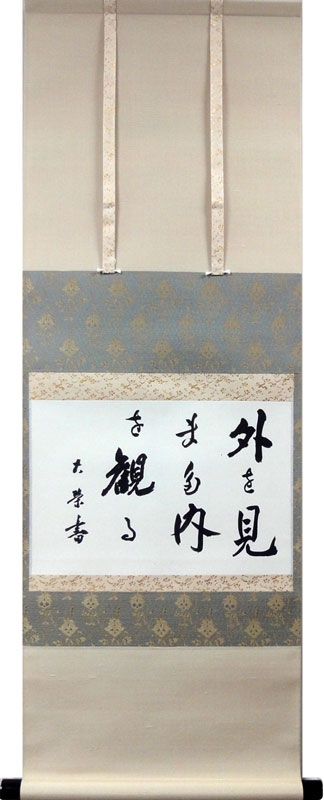 外を見
また内
を観る
大榮書